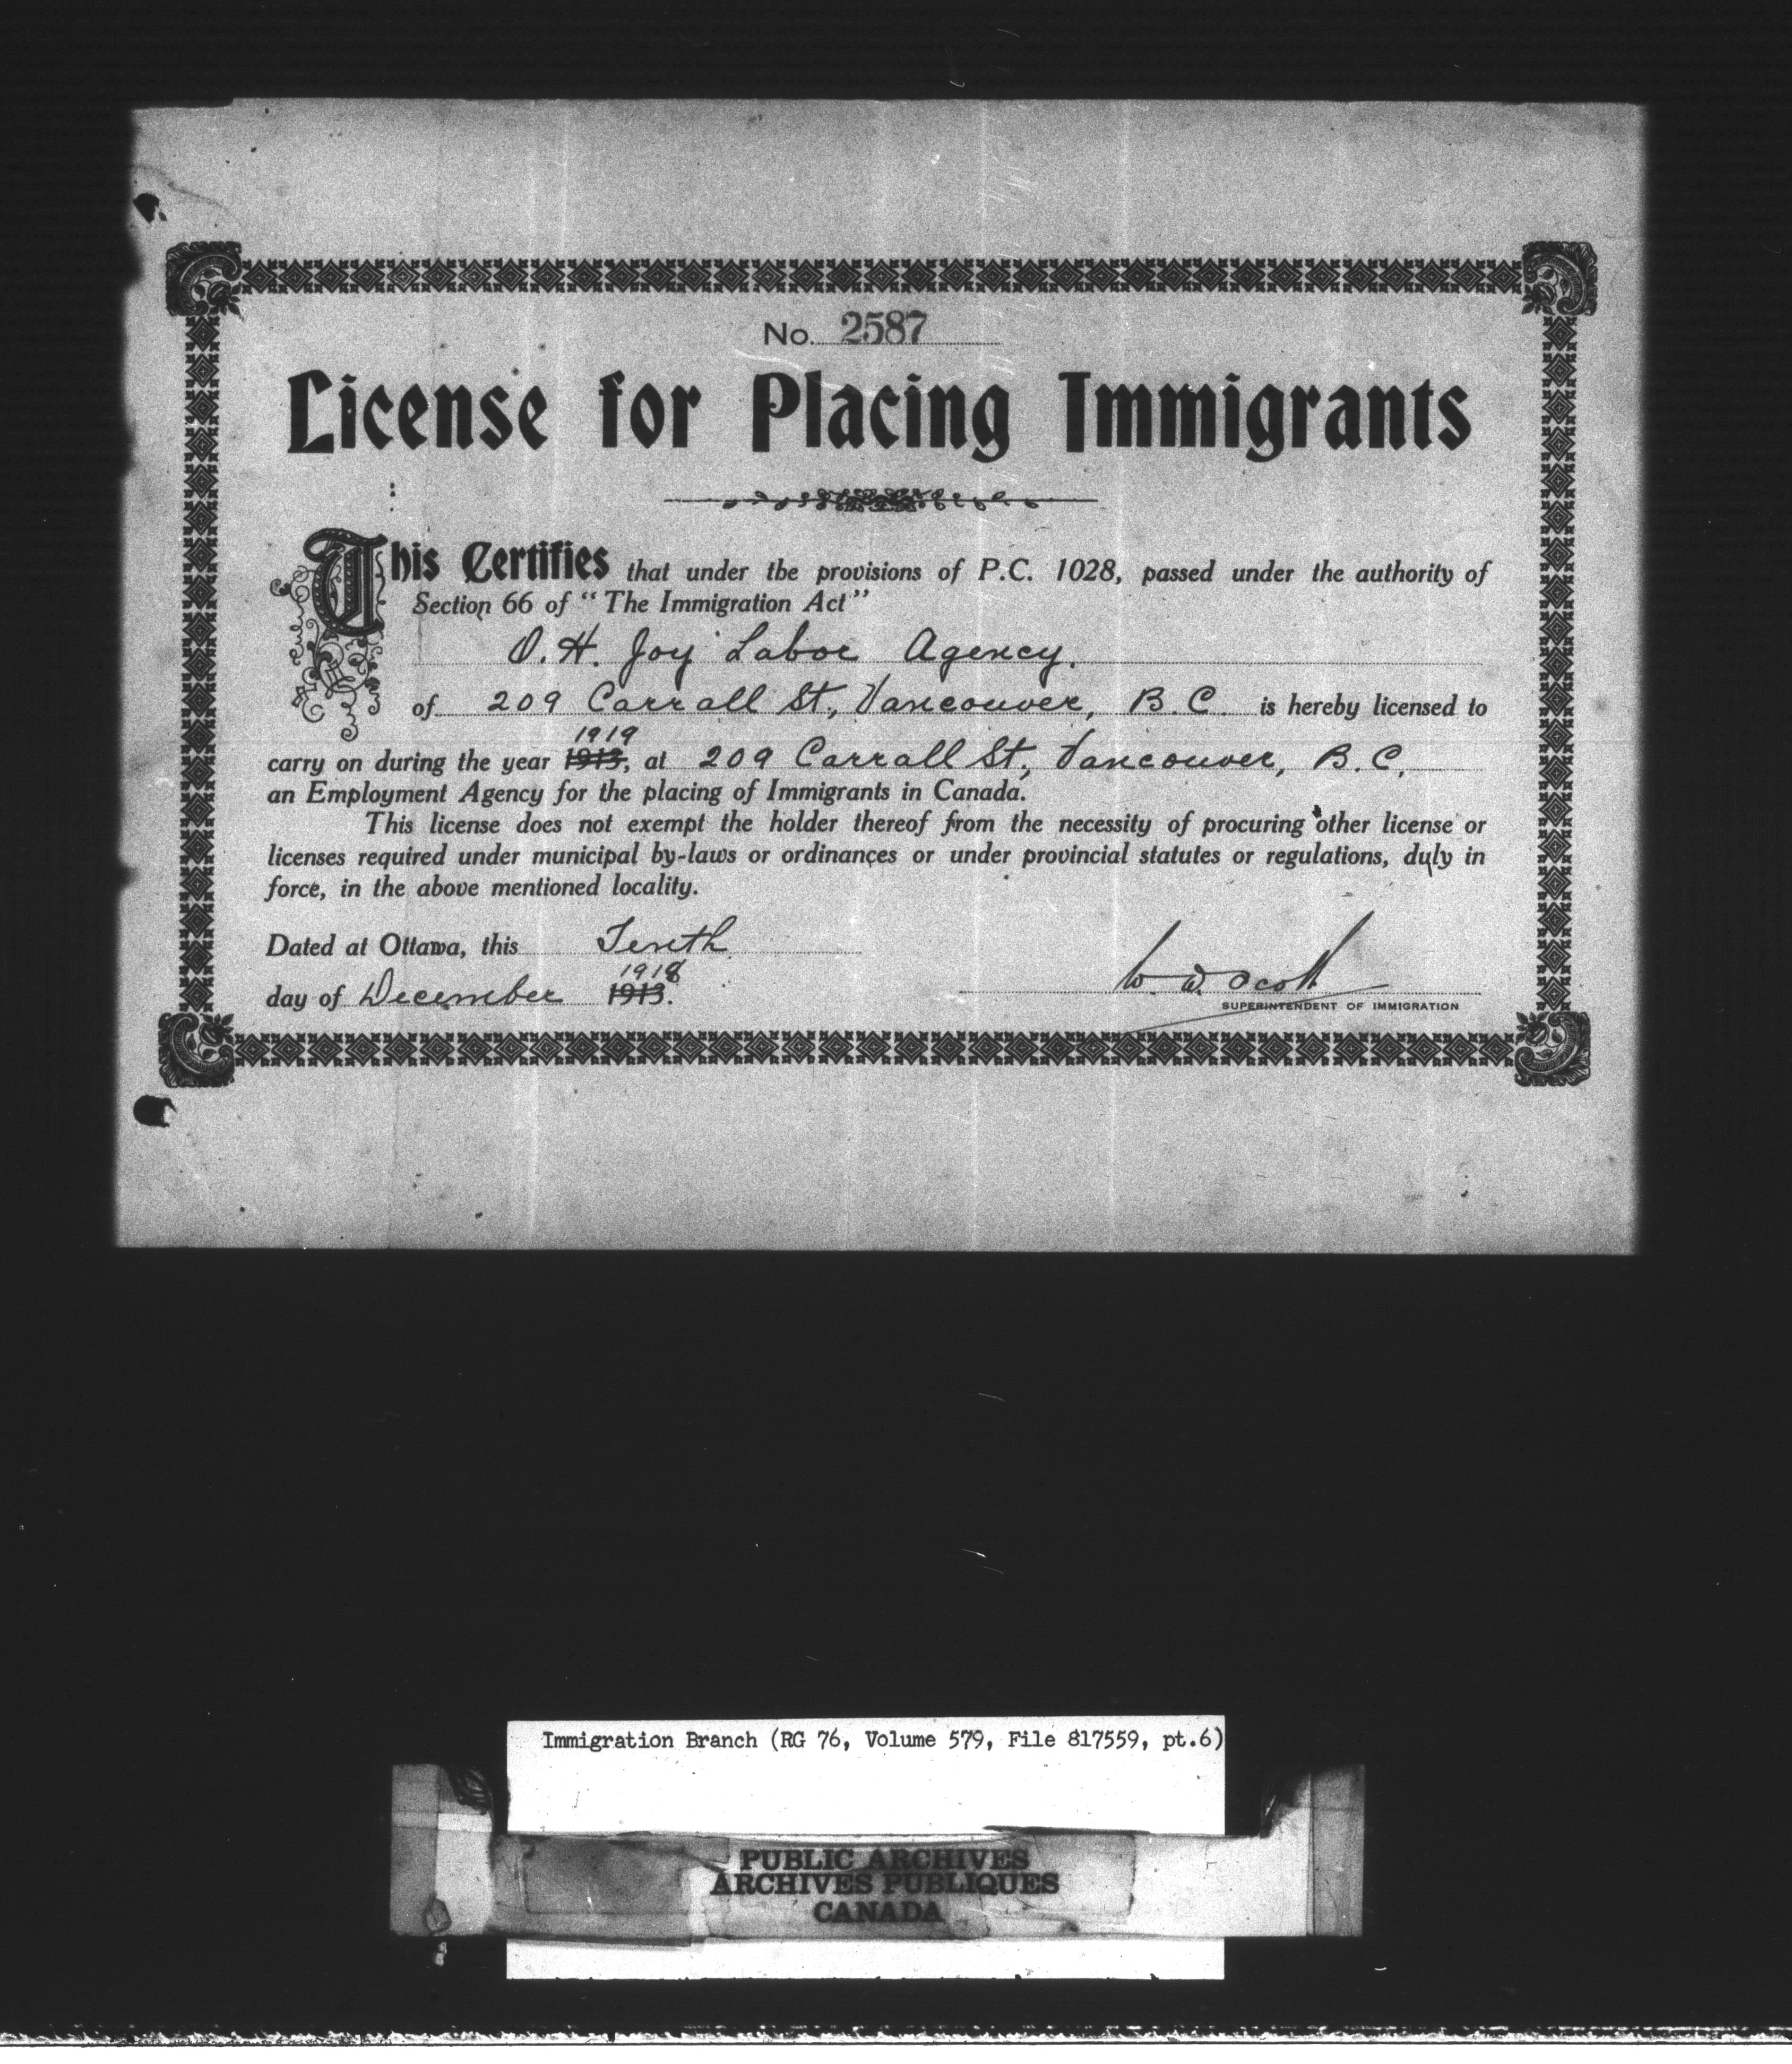 No. 2587
License for Placing Immigrants
This Certifies that under the provisions of P.C. 1028, passed under the authority of
Section 66 of "The Immigration Act"
O. H. Joy Labor Agency.
of 209 Carrall St., Vancouver, B.C. is hereby licensed to
1919
carry on during the year 1913, at 209 Carrall St., Vancouver, B.C.
an Employment Agency for the placing of Immigrants in Canada.
This license does not exempt the holder thereof from the necessity of procuring other license or
licenses required under municipal by-laws or ordinances or under provincial statutes or regulations, duly in
force, in the above mentioned locality.
Dated at Ottawa, this Tenth
1918
day of December 1913.
W. D. Scott
SUPERINTENDENT OF IMMIGRATION
Immigration Branch (RG 76, Volume 579, File 817559, pt.6)
PUBLIC ARCHIVES
ARCHIVES PUBLIQUES
CANADA